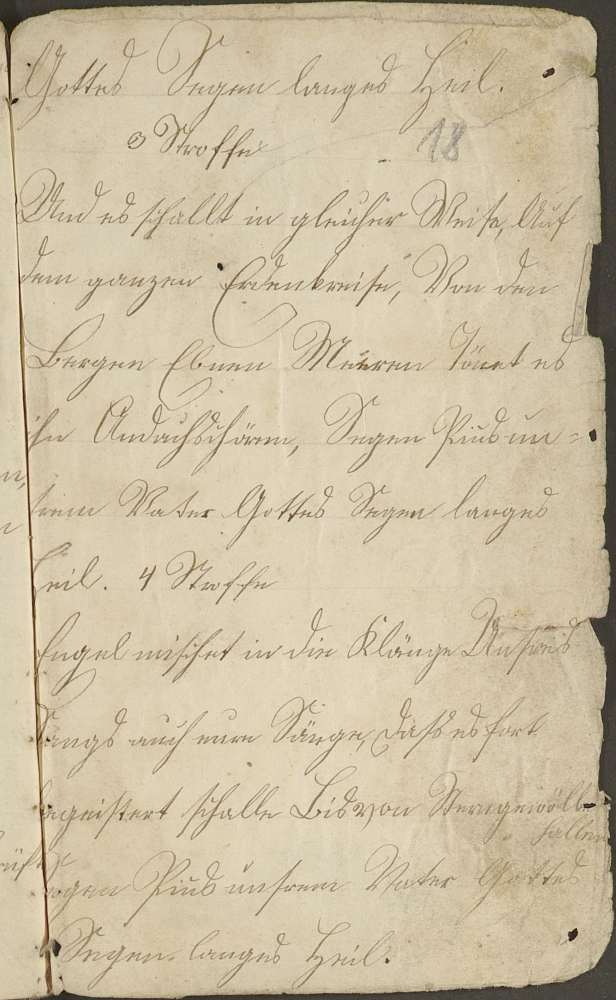 Gottes Segen langes Heil.
3 Stroffe
18
Und es schallt in gleicher Weise, Auf
dem ganzen Erdenkreise, Von den
Bergen Ebnen Meeren Tönet es
in Andachschören, Segen Pius un=
srem Vater Gottes Segen langes
Heil. 4 Stroffe
Engel mischet in die Klänge Unsres
Sangs auch eure Sänge, Dass es fort
begeistert schalle Bis von Sterngewölb-
hallen
Segen Pius unsrem Vater Gottes
Segen langes Heil.